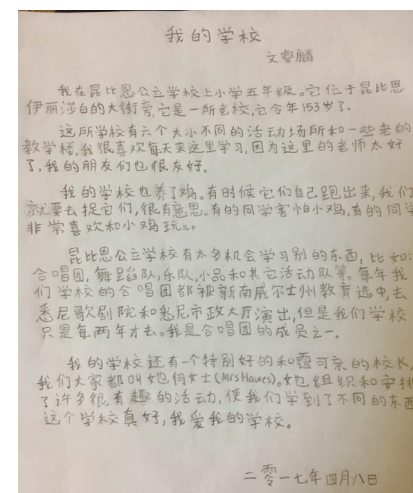 我的学校
文睿麟
我在昆比恩公立学校上小学五年级。它位于昆比恩
伊丽莎白的大街旁,它是一所老校,它今年153岁了。
这所学校有六个大小不同的活动场所和一些老的
教学楼。我很喜欢每天来这里学习,因为这里的老师太好
了,我的朋友们也很友好。
我的学校也养了鸡。有时候它们自己跑出来,我们
就要去捉它们,很有意思。有的同学害怕小鸡,有的同学
非常喜欢和小鸡玩儿。
昆比恩公立学校有太多机会学习别的东西,比如:
合唱团,舞蹈队,乐队,小品和其它活动队等。每年我
们学校的合唱团都被新南威尔士州教育选中,去
悉尼歌剧院和悉尼市政大厅演出,但是我们学校
只是每两年才去。我是合唱团的成员之一。
我的学校还有一个特别好的和蔼可亲的校长,
我们大家都叫她何女士(Mrs Hawes)。她组织和安排
了许多很有趣的活动,使我们学到了不同的东西
这个学校真好,我爱我的学校。
二零一七年四月八日